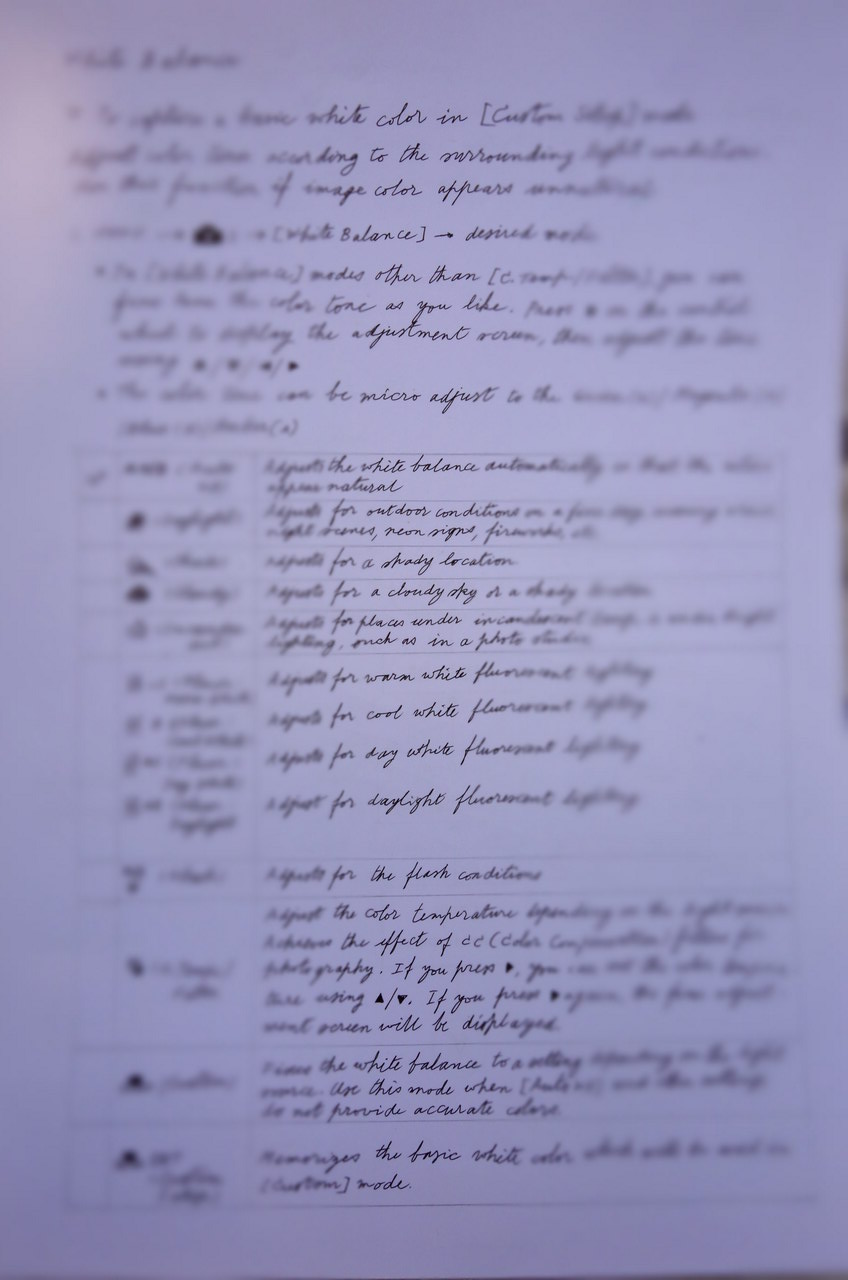 White Balance
To capture a basic white color in [Custom Setup] mode
Adjust color tone according to the surrounding light conditions
Use this function if image color appears unnatural
→ → [White Balance] → desired mode
• In [White Balance] modes other than [C.Temp./Filter], you can
fine tune the color tone as you like. Press on the control
wheel to display the adjustment screen, then adjust the tone
using ▲/▼/◀/▶
• The color tone can be micro adjust to the Green(G)/Magenta(M)
/Blue(B)/Amber(A)
Adjusts the white balance automatically so that the
appear natural
Adjusts for outdoor conditions on a fine day, evening
night scenes, neon signs, fireworks, etc.
Adjusts for a shady location
Adjusts for a cloudy sky or a shady location
Adjusts for places under incandescent lamps, under bright
lighting, such as in a photo studio
Adjusts for warm white fluorescent lighting
Adjusts for cool white fluorescent lighting
Adjusts for day white fluorescent lighting
Adjust for daylight fluorescent lighting
Adjusts for the flash conditions
Adjust the color temperature depending on the light source
Achieves the effect of CC (Color Compensation) filters for
photography. If you press ▶, you can set the color tempera-
ture using ▲/▼. If you press ▶ again, the fine adjust-
ment screen will be displayed.
(Custom)
Fixes the white balance to a setting depending on the light
source. Use this mode when [Auto WB] and other settings
do not provide accurate colors.
Memorizes the basic white color which will be used in
[Custom] mode.